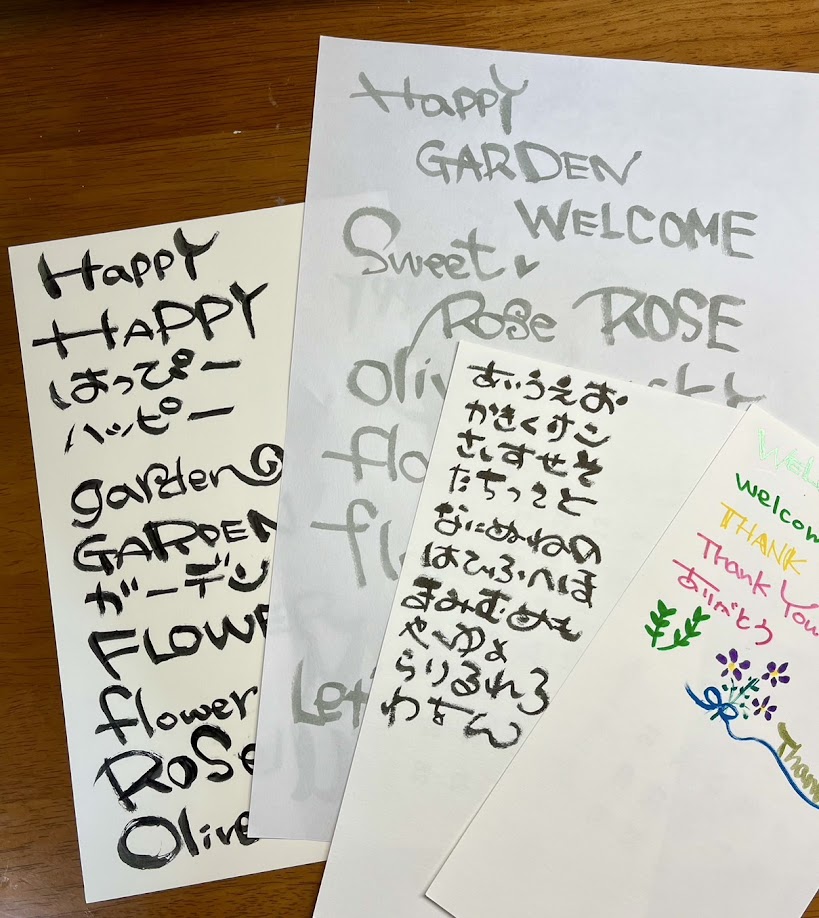 HappY
HAPPY
はっぴー
ハッピー
garden
GARDEN
ガーデン
FLOWE
flower
ROSE
Olive
HappY
GARDEN
WELCOME
Sweet♥
Rose ROSE
Oli
flo
fl
Let
あいうえお
かきくけこ
さしすせそ
たちつてと
なにぬねの
はひふへほ
まみむめも
やゆよ
らりるれろ
わをん
WEL
welcom
THANK
Thank You
ありがとう
Than